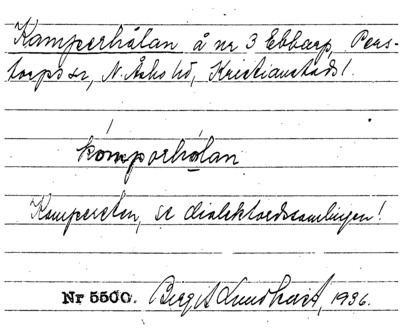 Kamperhålan å nr 3 Ebbarp, Pers-
torps sn, N. Åsbo hd, Kristianstads l.
kómporhólan
Kampersten, se dialektordssamlingen!
Nr 5500. Birgit Lundkvist, 1936.